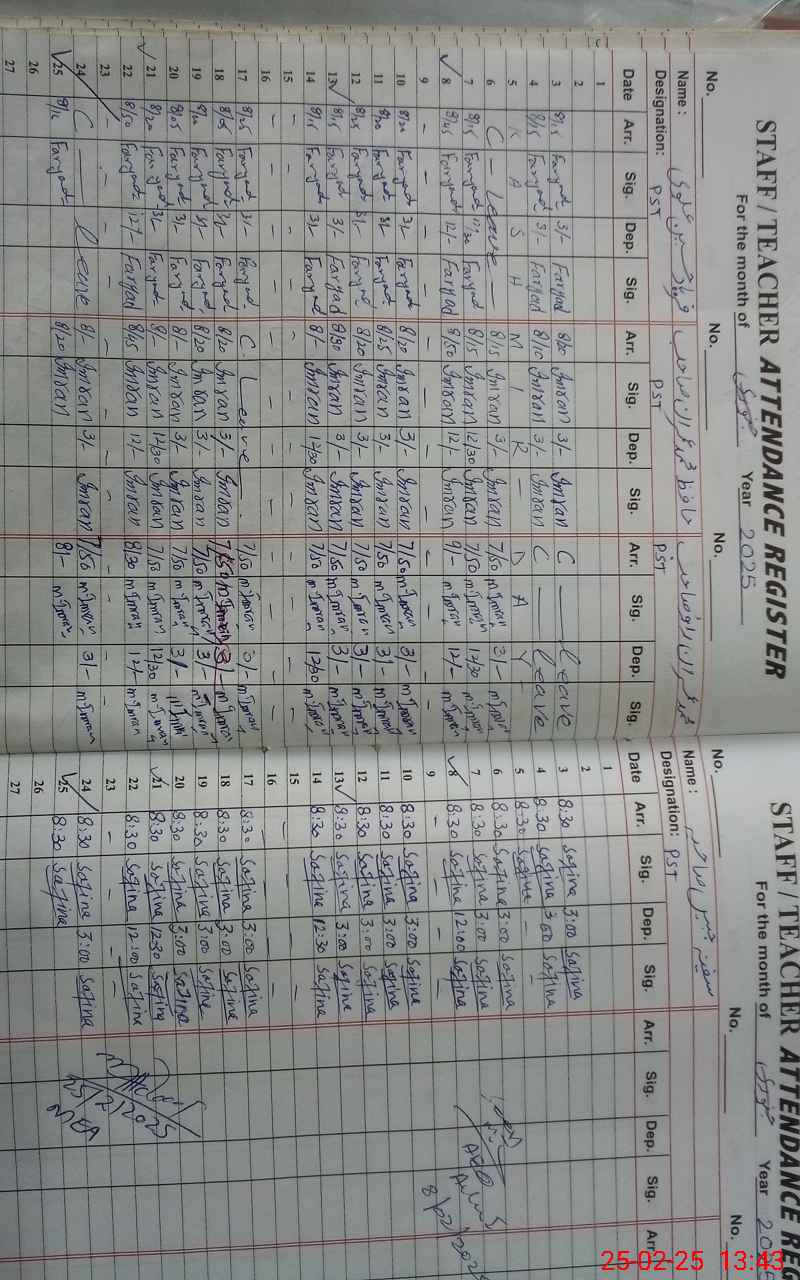 STAFF / TEACHER ATTENDANCE REGISTER
For the month of فروری Year 2025
No. No. No.
Name :
Designation: PST PST PST
Date Arr. Sig. Dep. Sig. Arr. Sig. Dep. Sig. Arr. Sig. Dep. Sig.
1
2
3 8/15 Faryad 3/- Faryad 8/20 Imran 3/- Imran C Leave
4 8/15 Faryad 3/- Faryad 8/10 Imran 3/- Imran C Leave
5 K A S H M I R - D A Y
6 C - Leave - 8/15 Imran 3/- Imran 7/50 m Imran 3/- m Imran
7 8/15 Faryad 12/30 Faryad 8/15 Imran 12/30 Imran 7/50 m Imran 12/30 m Imran
8 8/45 Faryad 12/- Faryad 8/50 Imran 12/- Imran 9/- m Imran 12/- m Imran
9 - - - - - - - -
10 8/20 Faryad 3/- Faryad 8/20 Imran 3/- Imran 7/50 m Imran 3/- m Imran
11 8/20 Faryad 3/- Faryad 8/25 Imran 3/- Imran 7/50 m Imran 3/- m Imran
12 8/25 Faryad 3/- Faryad 8/20 Imran 3/- Imran 7/50 m Imran 3/- m Imran
13 8/15 Faryad 3/- Faryad 8/30 Imran 3/- Imran 7/50 m Imran 3/- m Imran
14 8/15 Faryad 3/- Faryad 8/- Imran 12/30 Imran 7/50 m Imran 12/30 m Imran
15 - - - - - - - -
16 - - - - - - - -
17 8/25 Faryad 3/- Faryad C. Leave - 7/50 m Imran 3/- m Imran
18 8/25 Faryad 3/- Faryad 8/20 Imran 3/- Imran 7/50 m Imran 3/- m Imran
19 Faryad 3/- Faryad 8/20 Imran 3/- Imran 7/50 m Imran 3/- m Imran
20 8/05 Faryad 3/- Faryad 8/- Imran 3/- Imran 7/50 m Imran 3/- m Imran
21 8/20 Faryad 3/- Faryad 8/- Imran 12/30 Imran 7/50 m Imran 12/30 m Imran
22 8/50 Faryad 12/- Faryad 8/45 Imran 12/- Imran 8/30 m Imran 12/- m Imran
23 - - - - - - - -
24 C - Leave 8/- Imran 3/- Imran 7/50 m Imran 3/- m Imran
25 8/12 Faryad 8/20 Imran 8/- m Imran
26
27
STAFF / TEACHER ATTENDANCE REG
For the month of فروری Year
No. No. No.
Name :
Designation: PST
Date Arr. Sig. Dep. Sig. Arr. Sig. Dep. Sig. Arr
1
2
3 8:30 Safina 3:00 Safina
4 8:30 Safina 3:00 Safina
5 8:30 Safina - -
6 8:30 Safina 3:00 Safina
7 8:30 Safina 3:00 Safina
8 8:30 Safina 12:00 Safina
9 - - - -
10 8:30 Safina 3:00 Safina
11 8:30 Safina 3:00 Safina
12 8:30 Safina 3:00 Safina
13 8:30 Safina 3:00 Safina
14 8:30 Safina 12:30 Safina
15 - - - -
16 - - - -
17 8:30 Safina 3:00 Safina
18 8:30 Safina 3:00 Safina
19 8:30 Safina 3:00 Safina
20 8:30 Safina 3:00 Safina
21 8:30 Safina 12:30 Safina
22 8:30 Safina 12:00 Safina
23 - - - -
24 8:30 Safina 3:00 Safina
25 8:30 Safina
26
27
25-02-25 13:43